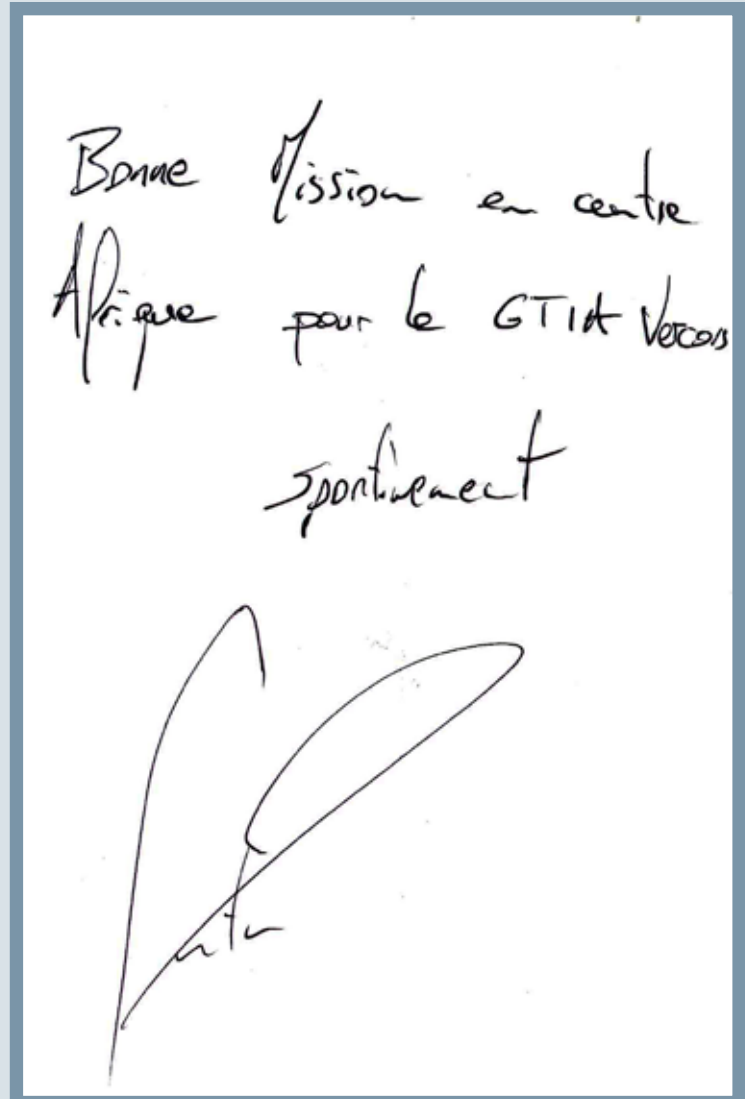 Bonne Mission en centre
Afrique pour le GTIA Vercors
sportivement